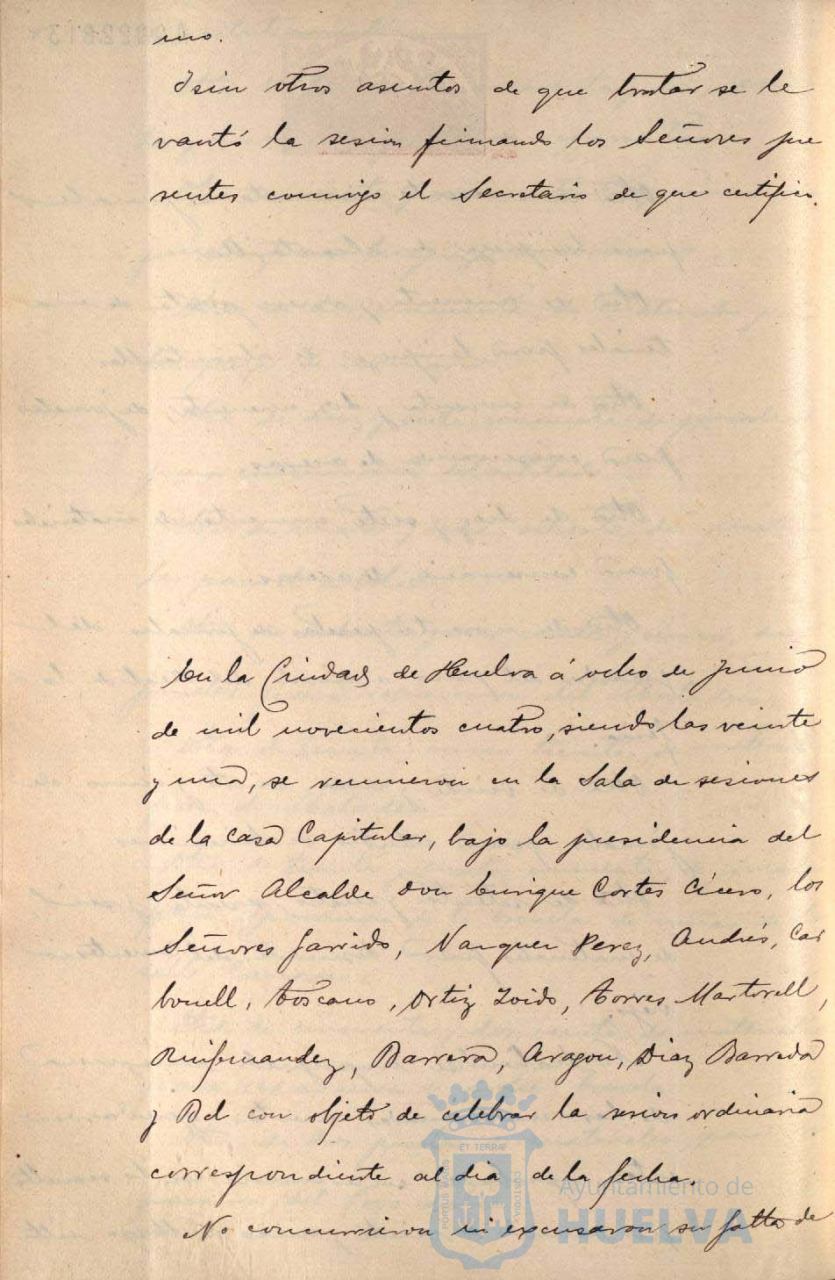 mo.
Y sin otros asuntos de que tratar se le
vantó la sesion firmando los Señores pre
sentes conmigo el Secretario de que certifico.
En la Ciudad de Huelva á ocho de Junio
de mil novecientos cuatro, siendo las veinte
y una, se reunieron en la Sala de sesiones
de la casa Capitular, bajo la presidencia del
Señor Alcalde Don Enrique Cortes Cicero, los
Señores Garrido, Vazquez Perez, Andrés, Car
bonell, Toscano, Ortiz Zoido, Torres Martorell,
Ruifernandez, Barrera, Aragon, Diaz Barreda
y Bel con objeto de celebrar la sesion ordinaria
correspondiente al dia de la fecha.
No concurrieron ni excusaron su falta de
Ayuntamiento de
HUELVA